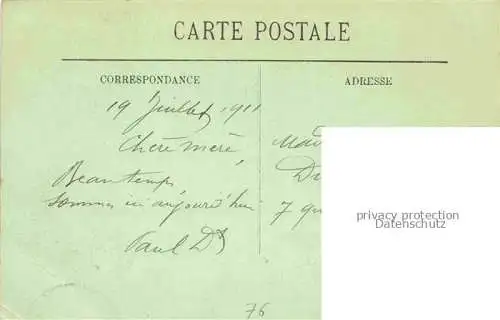 CARTE POSTALE
CORRESPONDANCE
ADRESSE
19 Juillet 1911
Chère mère,
Beau temps
sommes ici aujourd'hui
Paul D
Mad
Du
7 qu
privacy protection
Datenschutz
76